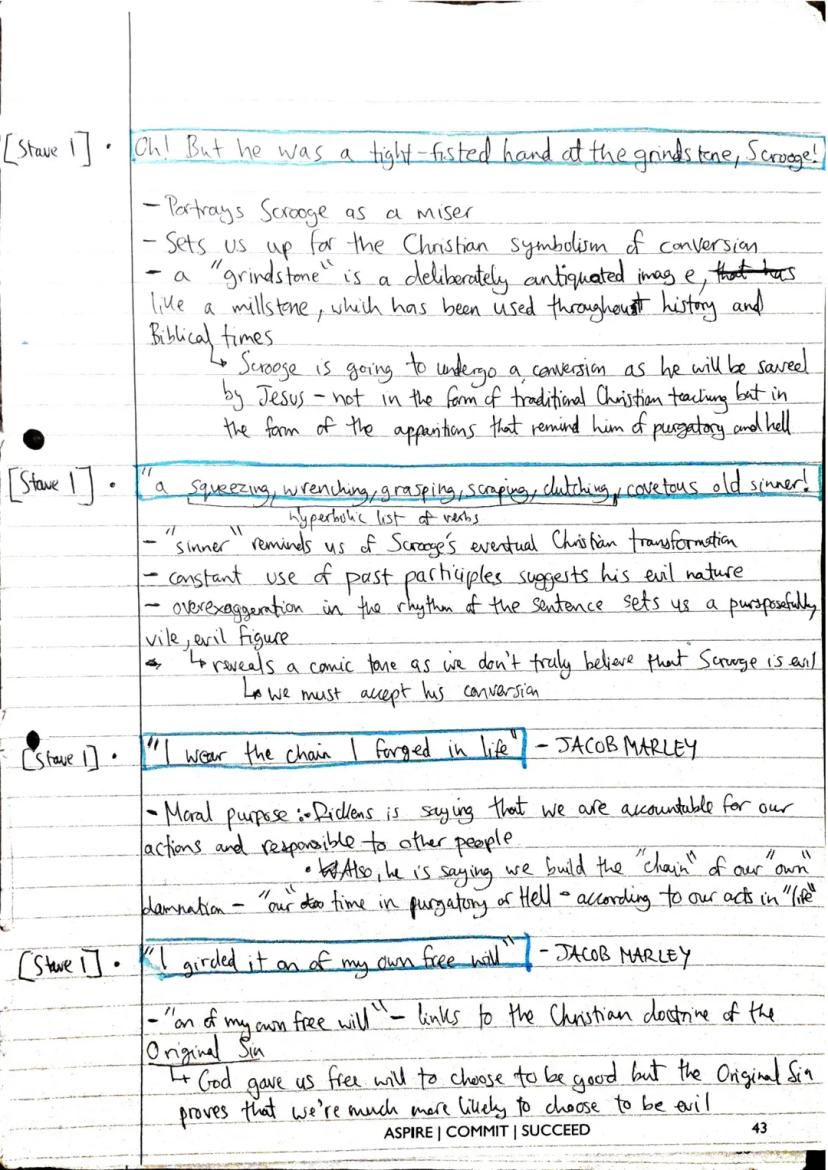 [Stave 1] • Oh! But he was a tight-fisted hand at the grindstone, Scrooge!
- Portrays Scrooge as a miser
- Sets us up for the Christian symbolism of conversion
- a "grindstone" is a deliberately antiquated image, that has
like a millstone, which has been used throughout history and
Biblical times
↳ Scrooge is going to undergo a conversion as he will be saved
by Jesus - not in the form of traditional Christian teaching but in
the form of the apparitions that remind him of purgatory and hell
[Stave 1] • "a squeezing, wrenching, grasping, scraping, clutching, covetous old sinner!
hyperbolic list of verbs
- "sinner" reminds us of Scrooge's eventual Christian transformation
- constant use of past participles suggests his evil nature
- overexaggeration in the rhythm of the sentence sets us a purposefully
vile, evil figure
↳ reveals a comic tone as we don't truly believe that Scrooge is evil
↳ we must accept his conversion
[Stave 1] • "I wear the chain I forged in life" - JACOB MARLEY
- Moral purpose :• Dickens is saying that we are accountable for our
actions and responsible to other people
• Also, he is saying we build the "chain" of our "own"
damnation - "our" time in purgatory or Hell - according to our acts in "life"
[Stave 1] • "I girded it on of my own free will" - JACOB MARLEY
- "on of my own free will" - links to the Christian doctrine of the
Original Sin
↳ God gave us free will to choose to be good but the Original Sin
proves that we're much more likely to choose to be evil
ASPIRE | COMMIT | SUCCEED 43